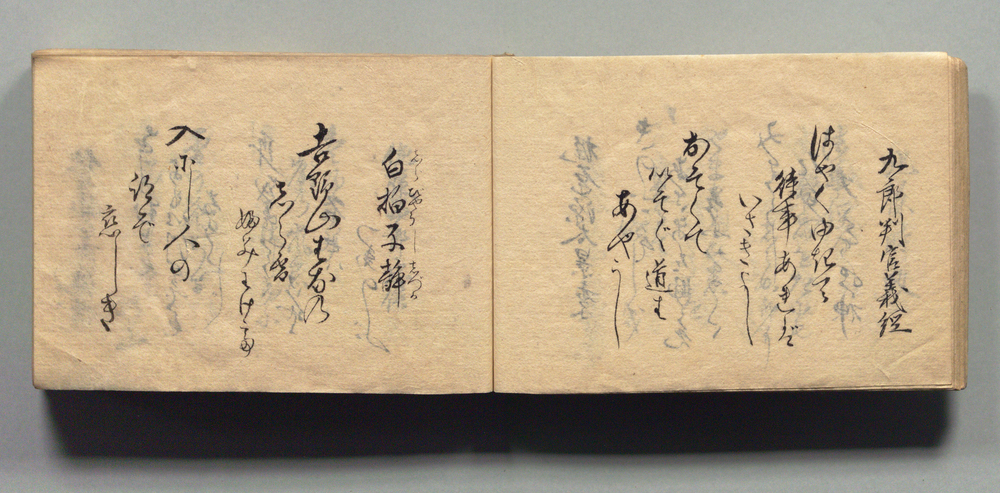 九郎判官義経
はやくゆきて
待事あれど
いさぎよし
おそくて
いそぐ道は
あやうし
白拍子静
しらびやうし しづか
吉野山みねの
しら雪
ふみわけて
入にし人の
跡ぞ
恋しき